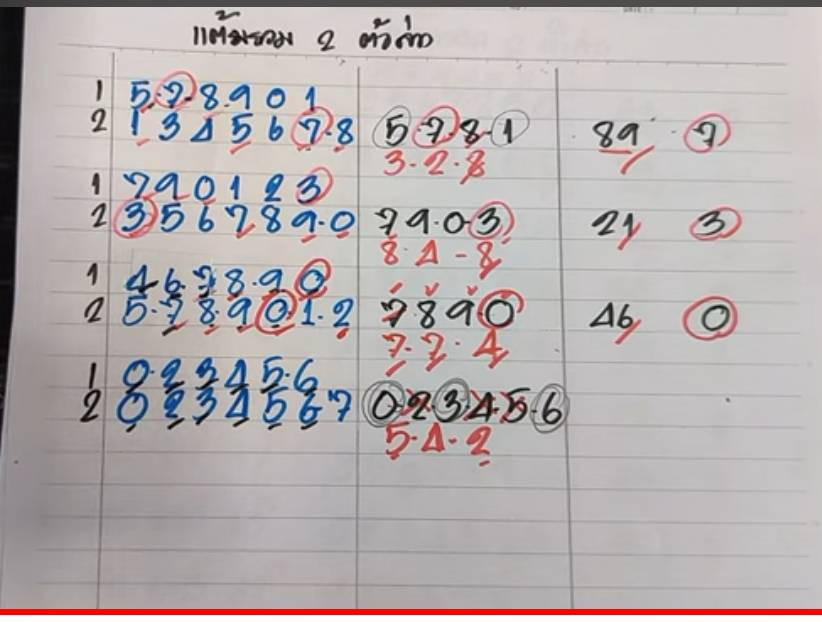 แต้มรวม 2 ตัวล่าง
1 5.7.8.9 0 1
2 1 3 4 5 6 7.8 5.7.8.1 89 7
3.2.8
1 7 9 0 1 2 3
2 3 5 6 7 8 9.0 7 9.0.3 21 3
8.4-8
1 4 6 7 8.9 0
2 5.7 8 9 0.1.2 7 8 9 0 46 0
7.7.4
1 0.2 3 4 5.6
2 0 2 3 4 5 6 7 0.2.3.4.5.6
5.4.2